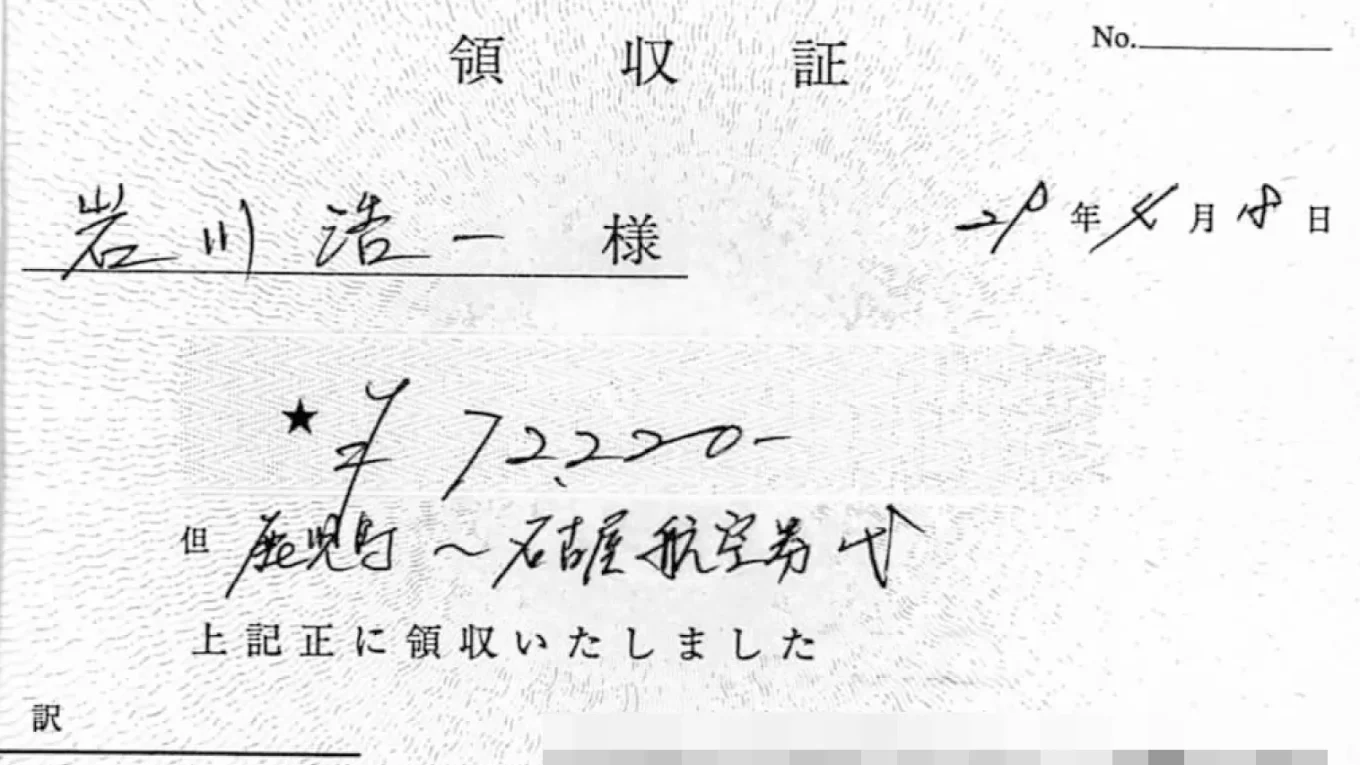 領収証
No.
岩川浩一 様
29年4月18日
★ ¥72,220-
但 鹿児島〜名古屋 航空券代
上記正に領収いたしました
訳